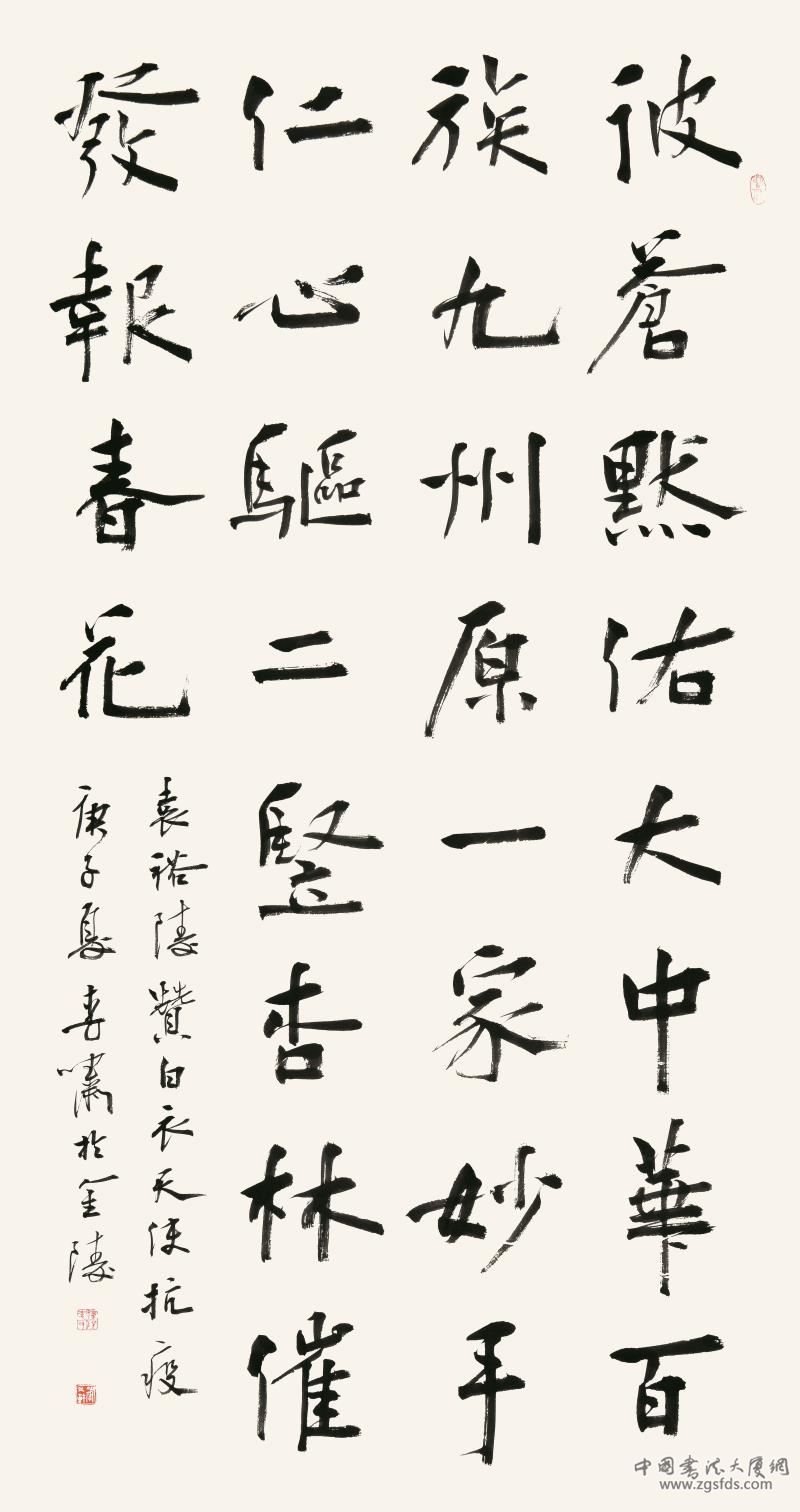 彼蒼默佑大中華百
族九州原一家妙手
仁心驅二豎杏林催
發報春花
袁裕陵贊白衣天使抗疫
庚子夏李嘯於金陵
中国書法大厦網
www.zgsfds.com